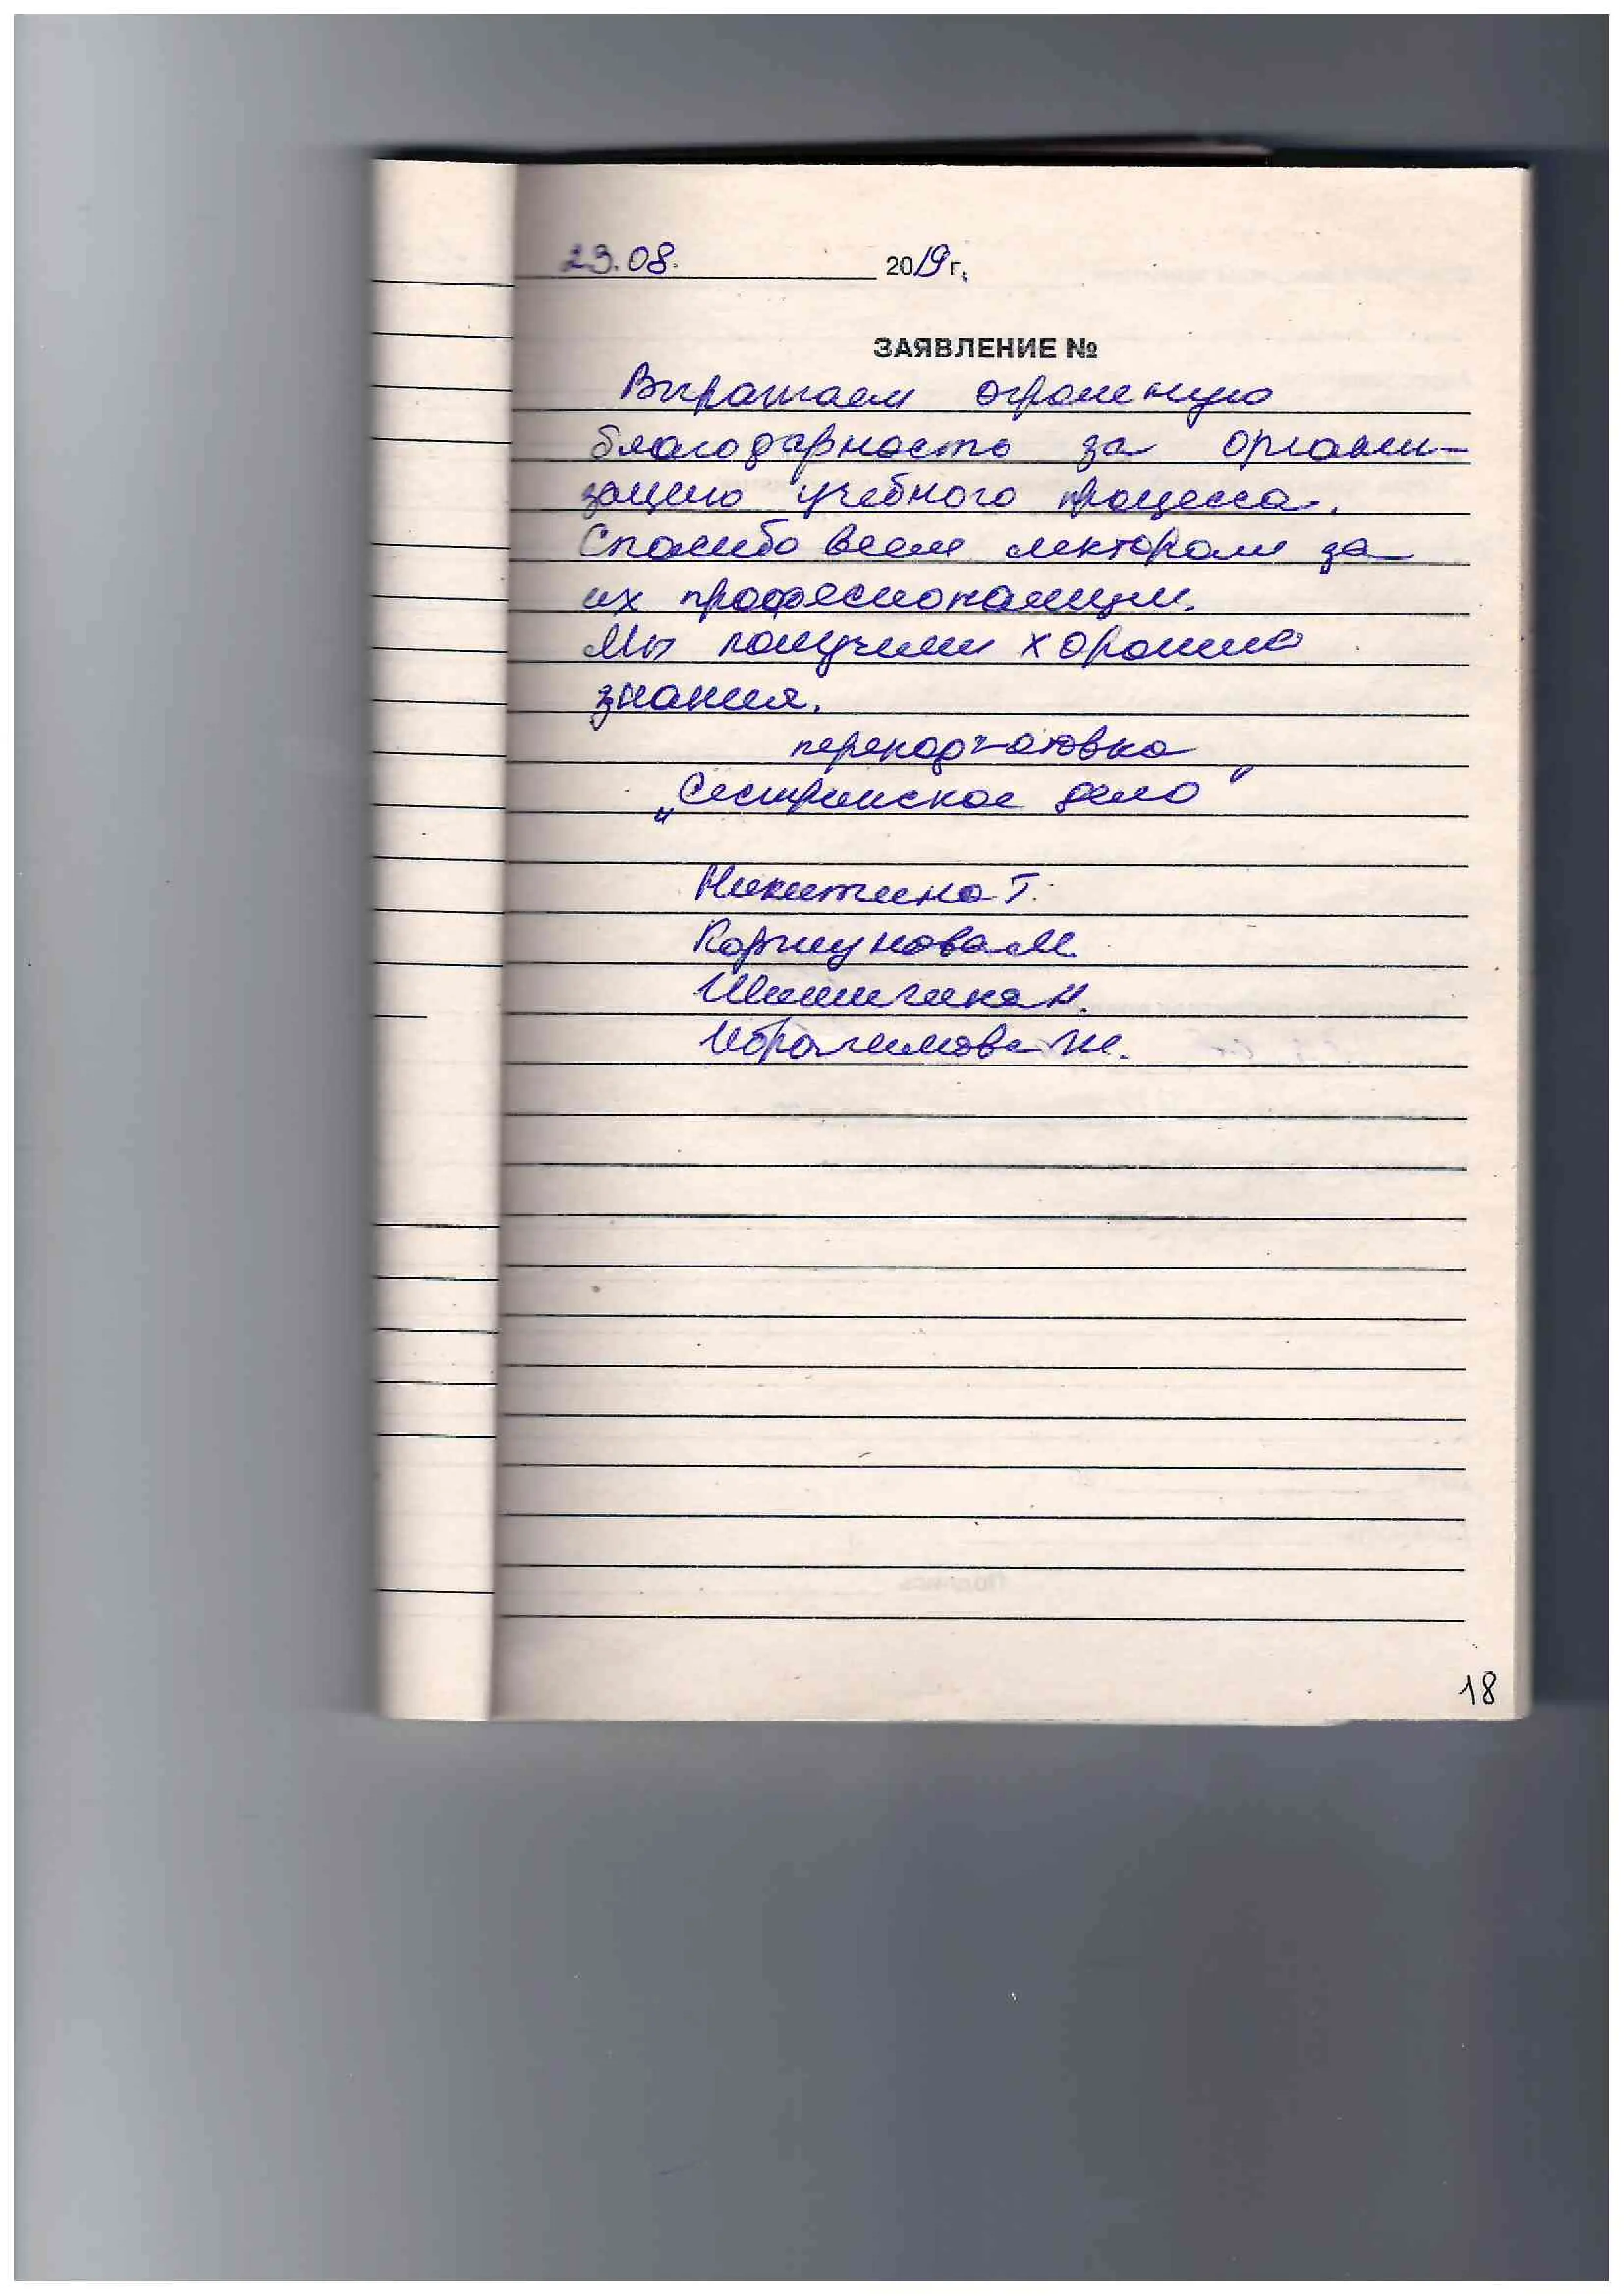 23.08. 2019 г.
ЗАЯВЛЕНИЕ №
Выражаем огромную
благодарность за органи-
зацию учебного процесса.
Спасибо всем лекторам за
их професионализм.
Мы получили хорошие
знания.
переподготовка
„Сестринское дело"
Никитина Т.
Коршунова М.
Шишигина Н.
Ибрагимова Ж.
18